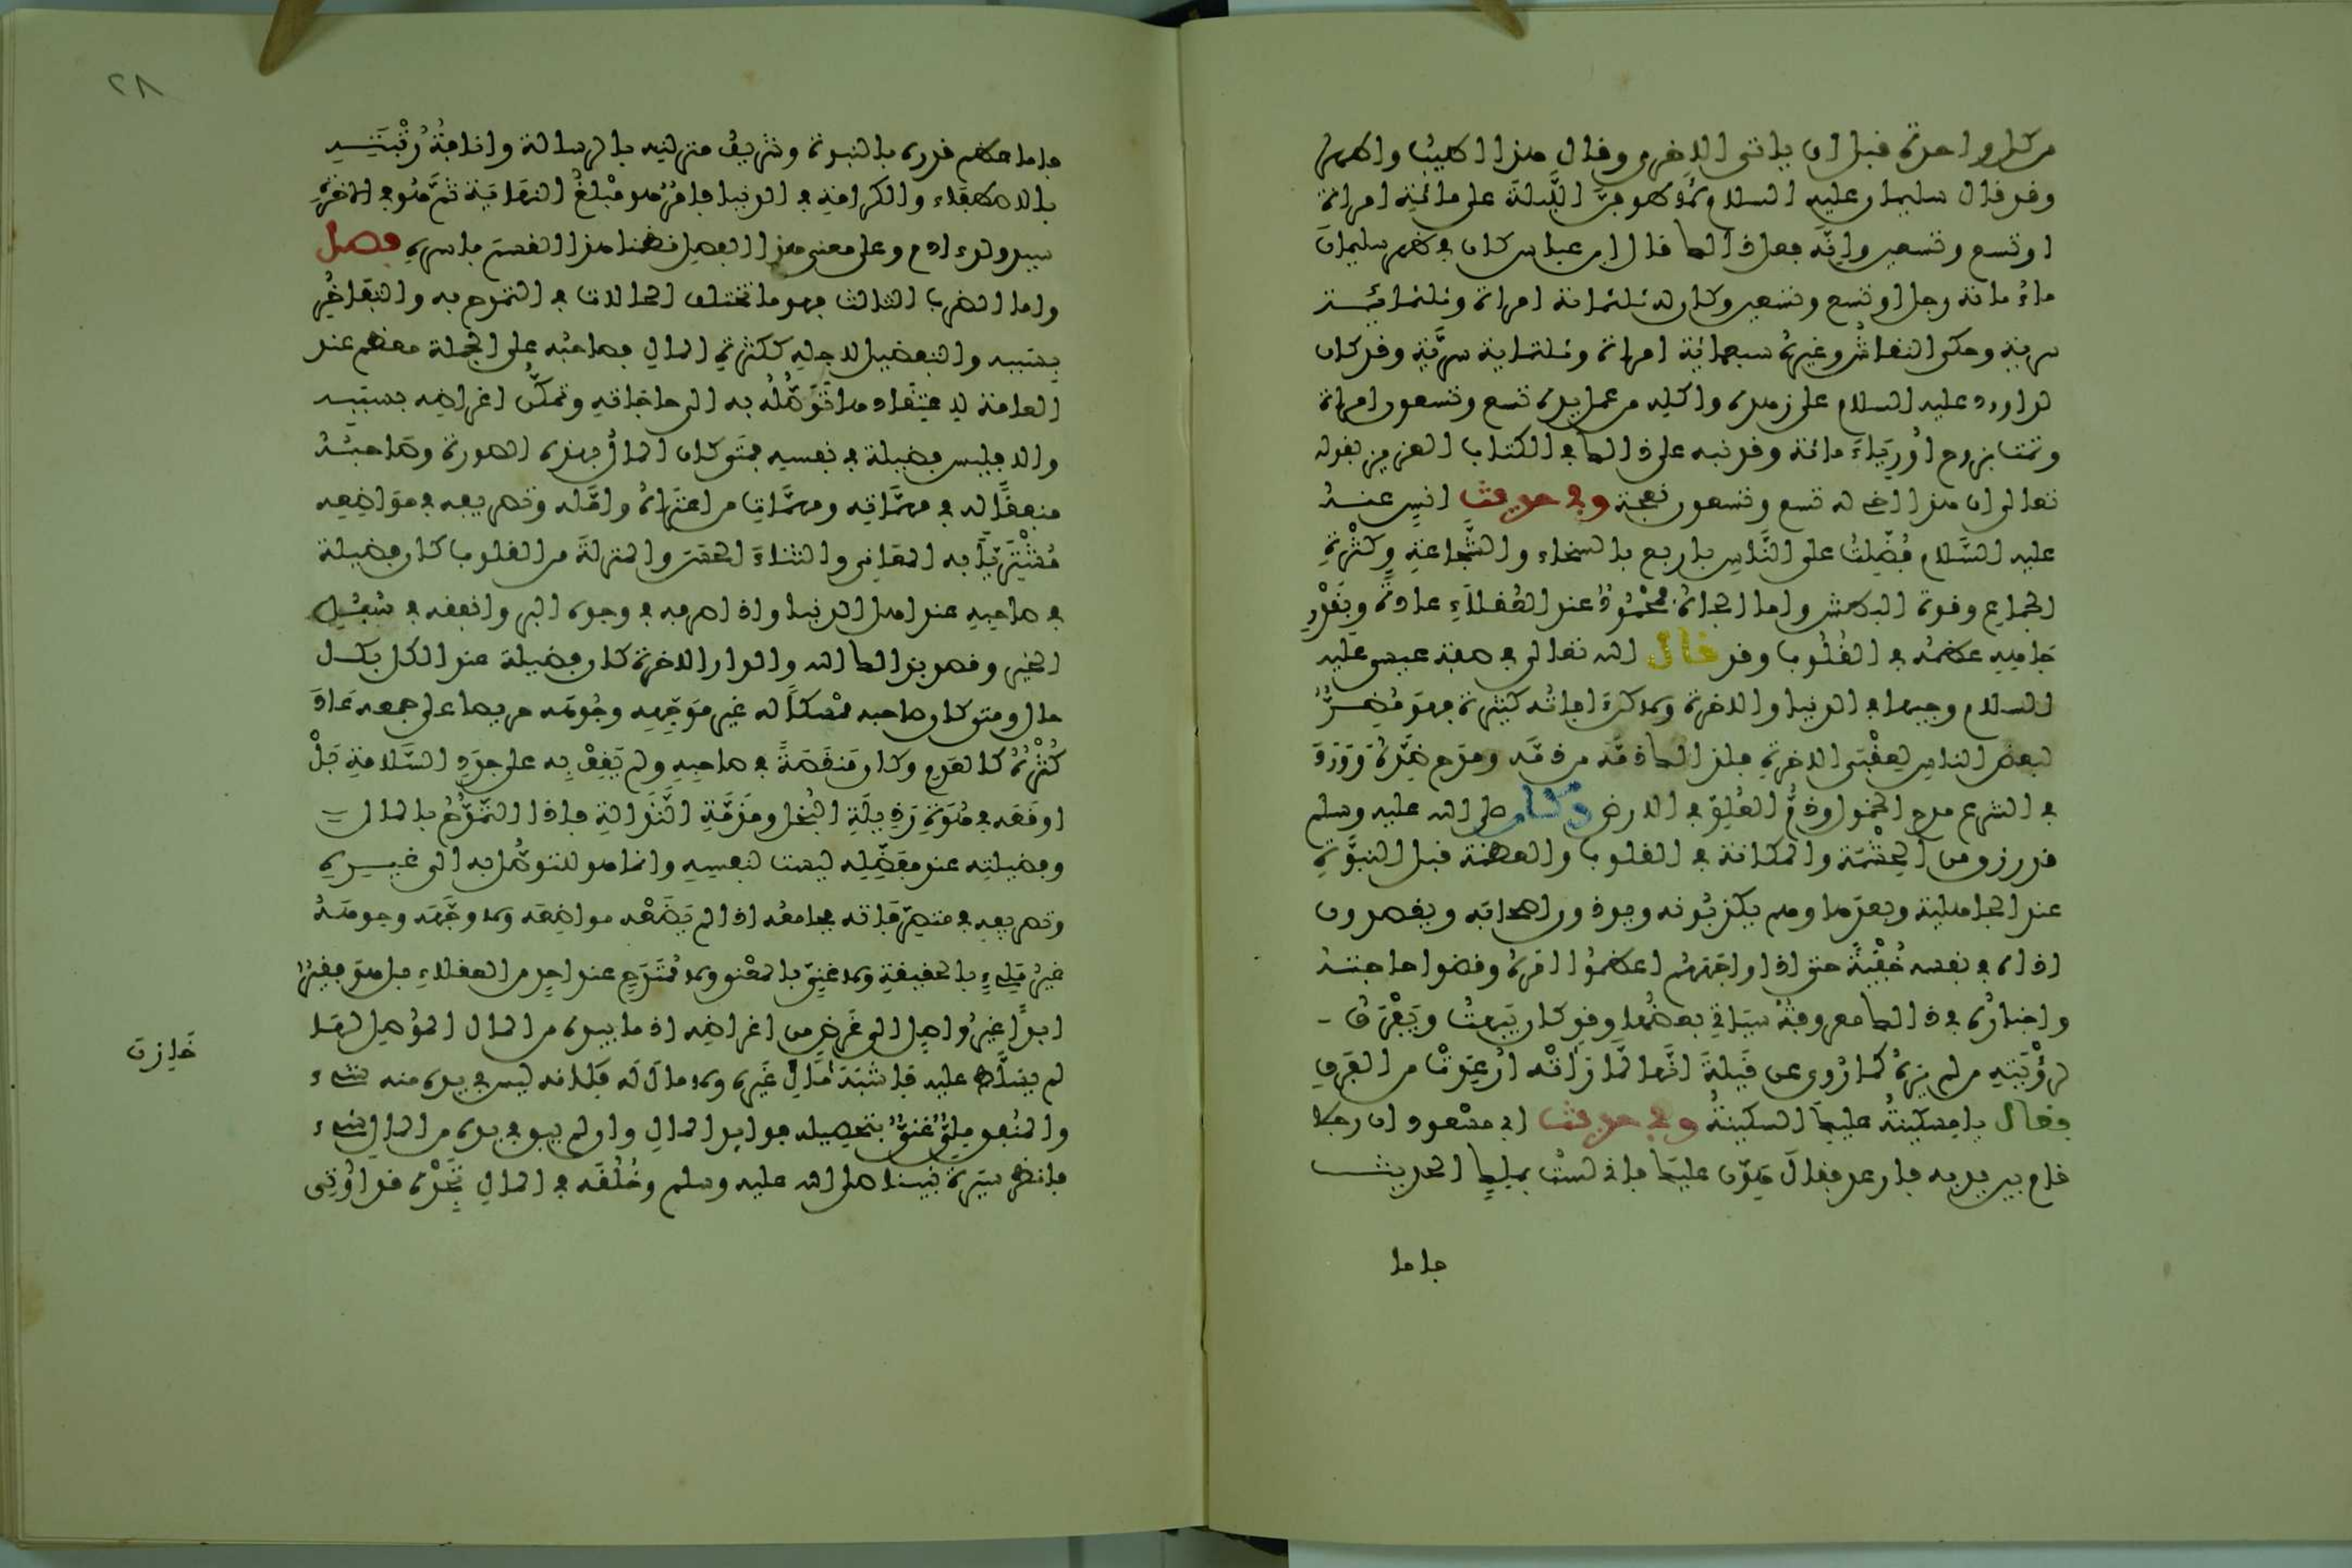 من كل واحدة قبل ان ياتي الاخرى وقال هذا اطيب واطهر
وقد قال سليمان عليه السلام لأطوفن الليلة على مائة امراة
او تسع وتسعين وانه فعل ذلك قال ابن عباس كان في ظهر سليمان
ماء مائة رجل او تسع وتسعين وكان له ثلثمائة امراة وثلثمائة
سرية وحكى النقاش وغيره سبعمائة امراة وثلثماية سرية وقد كان
لداوود عليه السلام على زهده واكله من عمل يده تسع وتسعون امراة
وتمت بزوج اورياء مائة وقد نبه على ذلك في الكتاب العزيز بقوله
تعالى ان هذا اخي له تسع وتسعون نعجة وفي حديث انس عنه
عليه السلام فضلت على الناس باربع بالسخاء والشجاعة وكثرة
الجماع وقوة البطش واما الجاه فمحمود عند العقلاء عادة وبقدر
جاهه عظمه في القلوب وقد قال الله تعالى في صفة عيسى عليه
السلام وجيها في الدنيا والاخرة ولاكن افاته كثيرة فهو مضر
لبعض الناس لعقبى الاخرة فلذلك ذمه من ذمه ومدح ضده وورد
في الشرع مدح الخمول وذم العلو في الارض وكان صلى الله عليه وسلم
قد رزق من الحشمة والمكانة في القلوب والعظمة قبل النبوة
عند الجاهلية وبعدها وهم يكذبونه ويوذون اصحابه ويقصدون
اذاه في نفسه خفية حتى اذا واجههم اعظموا امره وقضوا حاجته
واخباره في ذلك معروفة سياتي بعضها وقد كان يبهت ويفرق
لرؤيته من لم يره كما روي عن قيلة انها لما راته ارعدت من الفرق
فقال يا مسكينة عليك السكينة وفي حديث ابي مسعود ان رجلا
قام بين يديه فارعد فقال هون عليك فاني لست بملك الحديث
فاما
٢٨
فاما عظم قدره بالنبوة وشريف منزلته بالرسالة وانافة رتبته
بالاصطفاء والكرامة في الدنيا فامر هو مبلغ النهاية ثم هو في الاخرة
سيد ولد ادم وعلى معنى هذا الفصل نظمنا هذا القسم باسره فصل
واما الضرب الثالث فهو ما تختلف الحالات في التمدح به والتفاخر
بسببه والتفضيل لاجله ككثرة المال فصاحبه على الجملة معظم عند
العامة لاعتقادها توصله به الى حاجاته وتمكن اغراضه بسببه
والا فليس فضيلة في نفسه فمتى كان المال بهذه الصورة وصاحبه
منفقا له في مهماته ومهمات من اعتراه وامله وتصريفه في مواضعه
مشتريا به المعالي والثناء الحسن والمنزلة من القلوب كان فضيلة
في صاحبه عند اهل الدنيا واذا صرفه في وجوه البر وانفقه في سبيل
الخير وقصد بذلك الله والدار الاخرة كان فضيلة عند الكل بكل
حال ومتى كان صاحبه ممسكا له غير موجهه وجوهه حريصا على جمعه عاد
كثره كالعدم وكان منقصة في صاحبه ولم يقف به على جدد السلامة بل
اوقعه في هوة رذيلة البخل ومذمة النذالة فاذا التمدح بالمال
وفضيلته عند مفضله ليست لنفسه وانما هو للتوصل به الى غيره
وتصريفه في متصرفاته فجامعه اذا لم يضعه مواضعه ولا وجهه وجوهه
غير مليء بالحقيقة ولا غني بالمعنى ولا ممتدح عند احد من العقلاء بل هو فقير
ابدا غير واصل الى غرض من اغراضه اذ ما بيده من المال الموصل لها
لم يسلط عليه فاشبه خازن مال غيره ولا مال له فكانه ليس في يده منه شيء
خازن
والمنفق مليء غني بتحصيله فوائد المال وان لم يبق في يده من المال شيء
فانظر سيرة نبينا صلى الله عليه وسلم وخلقه في المال تجده قد اوتي